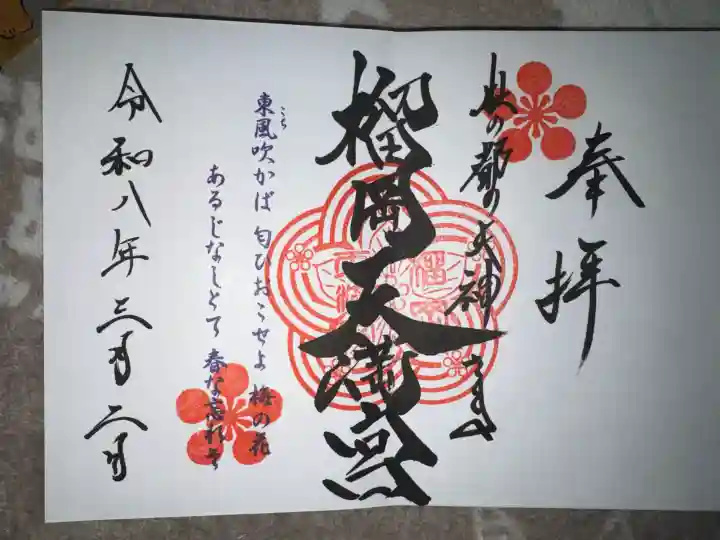 奉拝
杜の都の天神さま
榴岡天満宮
東風吹かば 匂ひおこせよ 梅の花
こち
あるじなしとて 春な忘れそ
令和八年三月二日